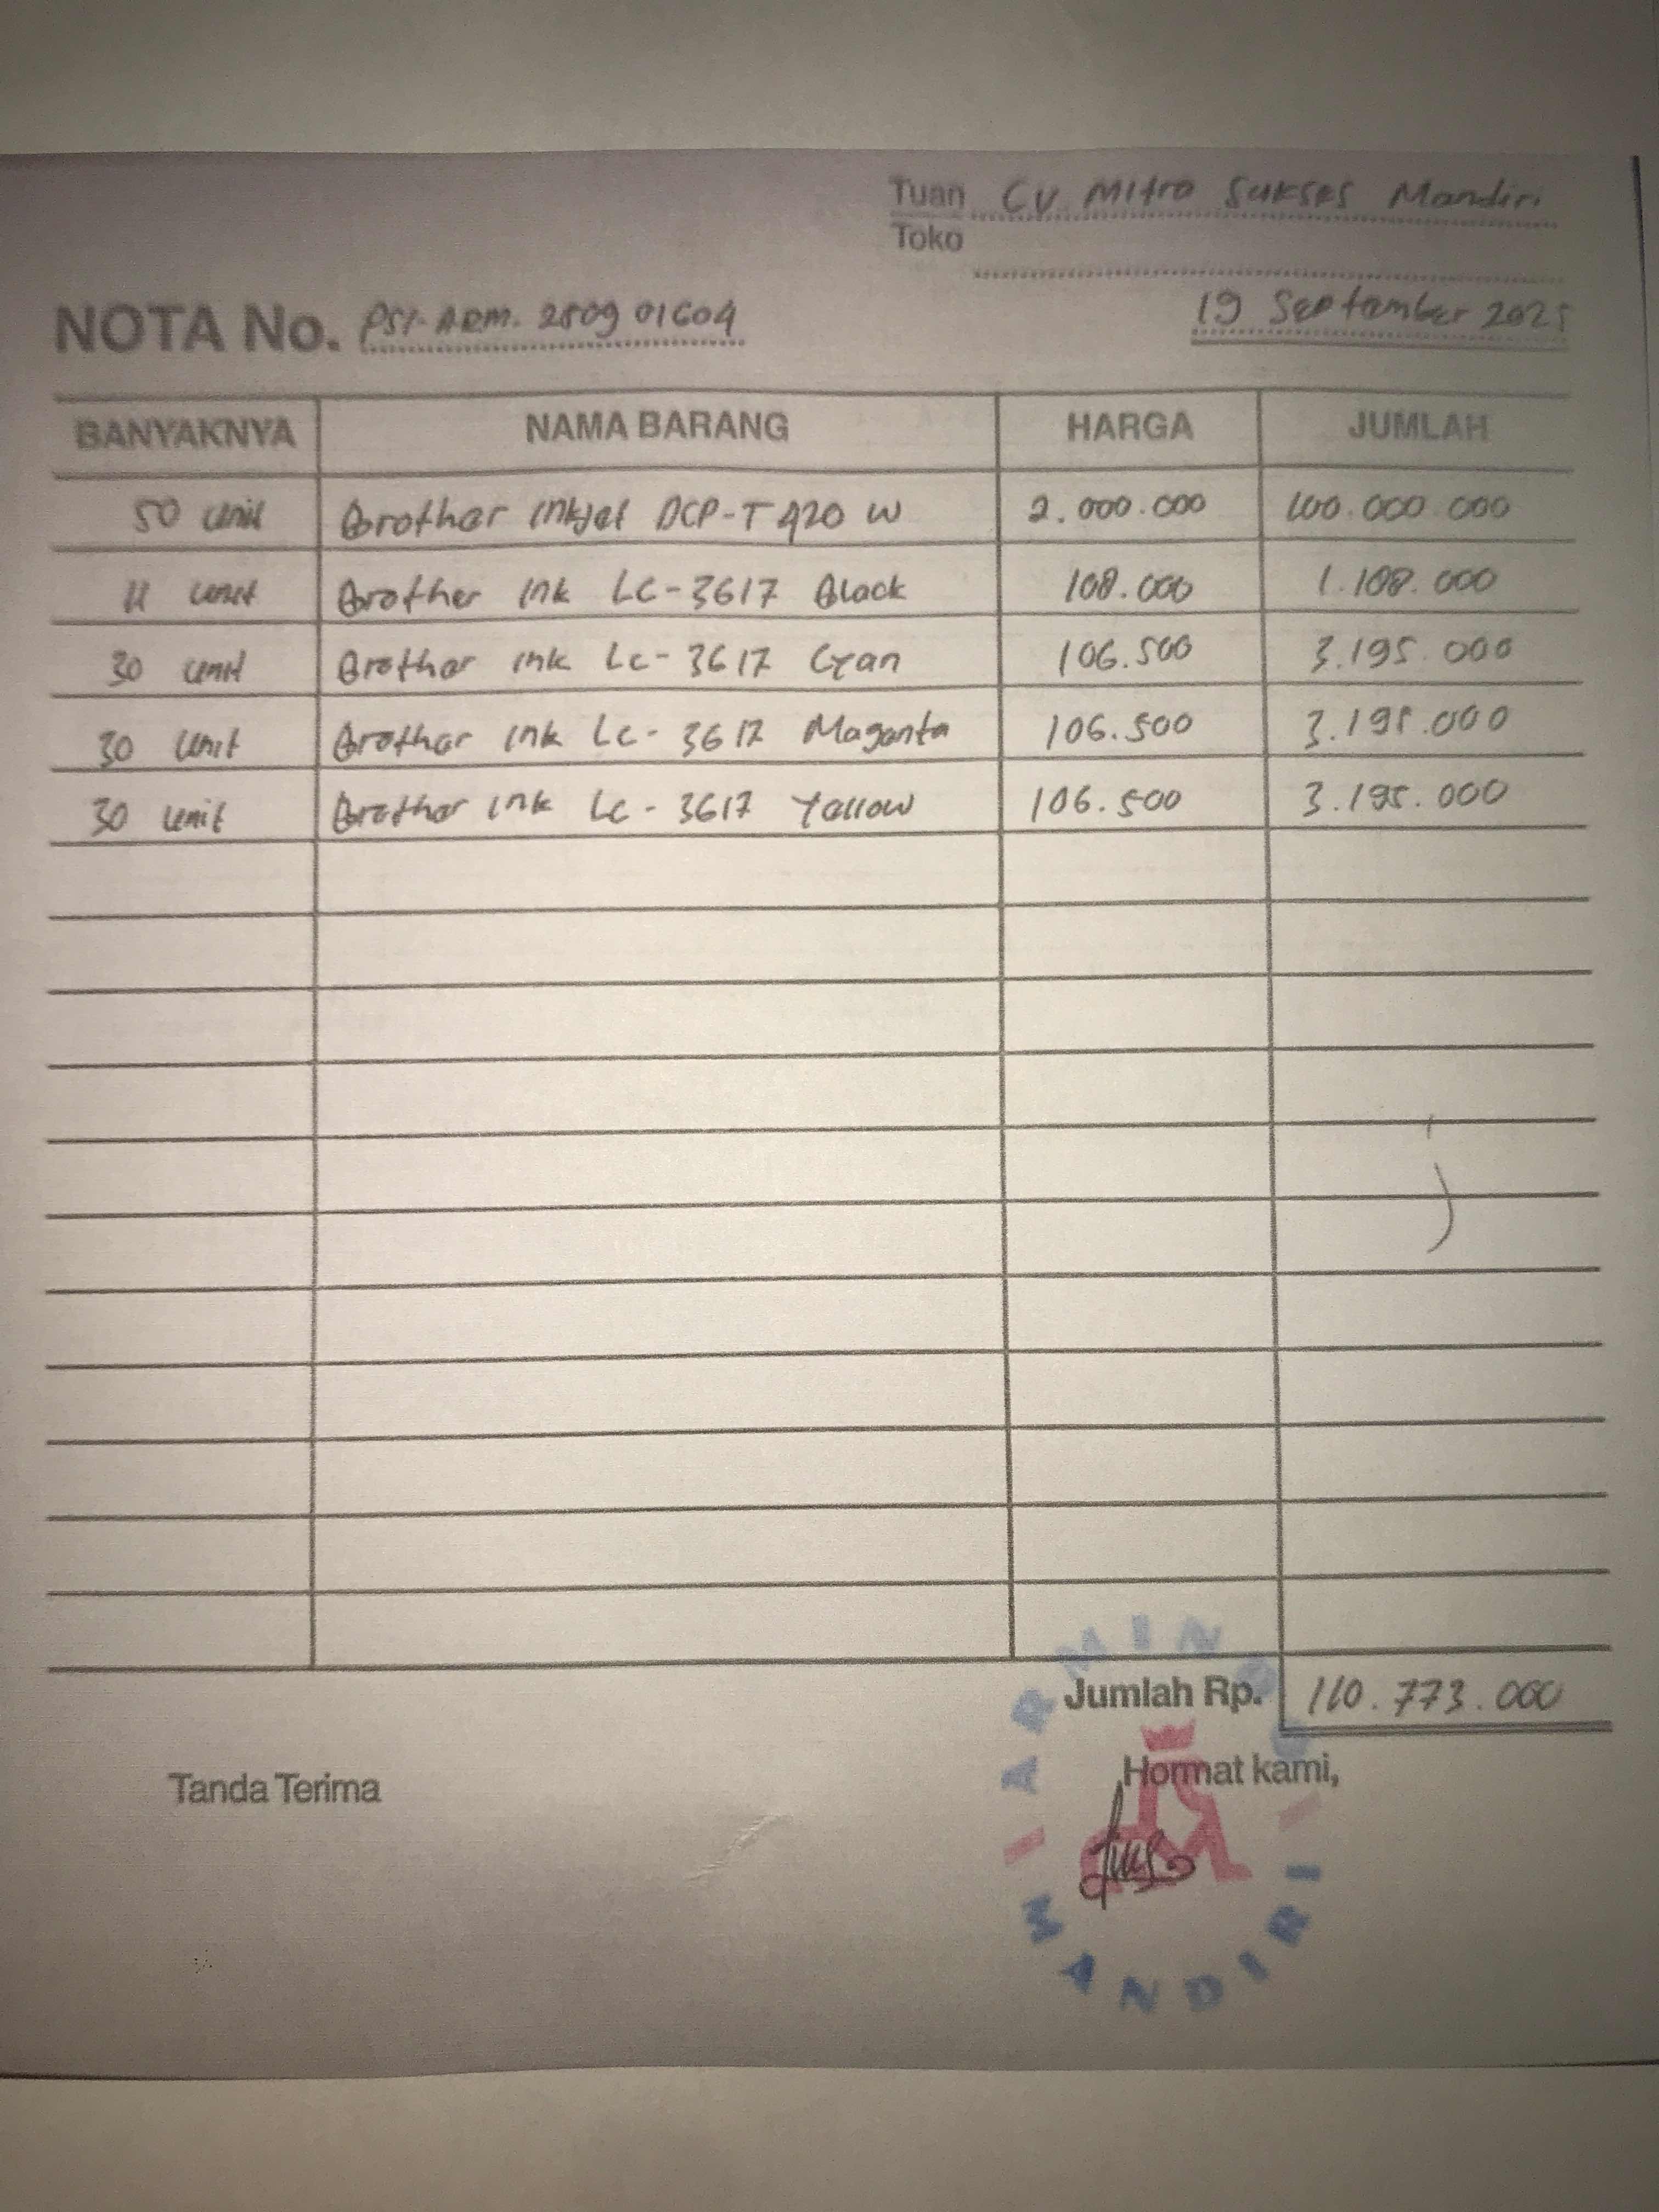 Tuan CV Mitra Sukses Mandiri
Toko
NOTA No. PSI-ARM. 250901604
19 September 2025
BANYAKNYA NAMA BARANG HARGA JUMLAH
50 unit Brother Inkjet DCP-T420 W 2.000.000 100.000.000
11 unit Brother Ink LC-3617 Black 108.000 1.188.000
30 unit Brother Ink LC-3617 Cyan 106.500 3.195.000
30 unit Brother Ink LC-3617 Maganta 106.500 3.195.000
30 unit Brother Ink LC-3617 Yellow 106.500 3.195.000
Jumlah Rp. 110.773.000
Tanda Terima
Hormat kami,
MANDIRI